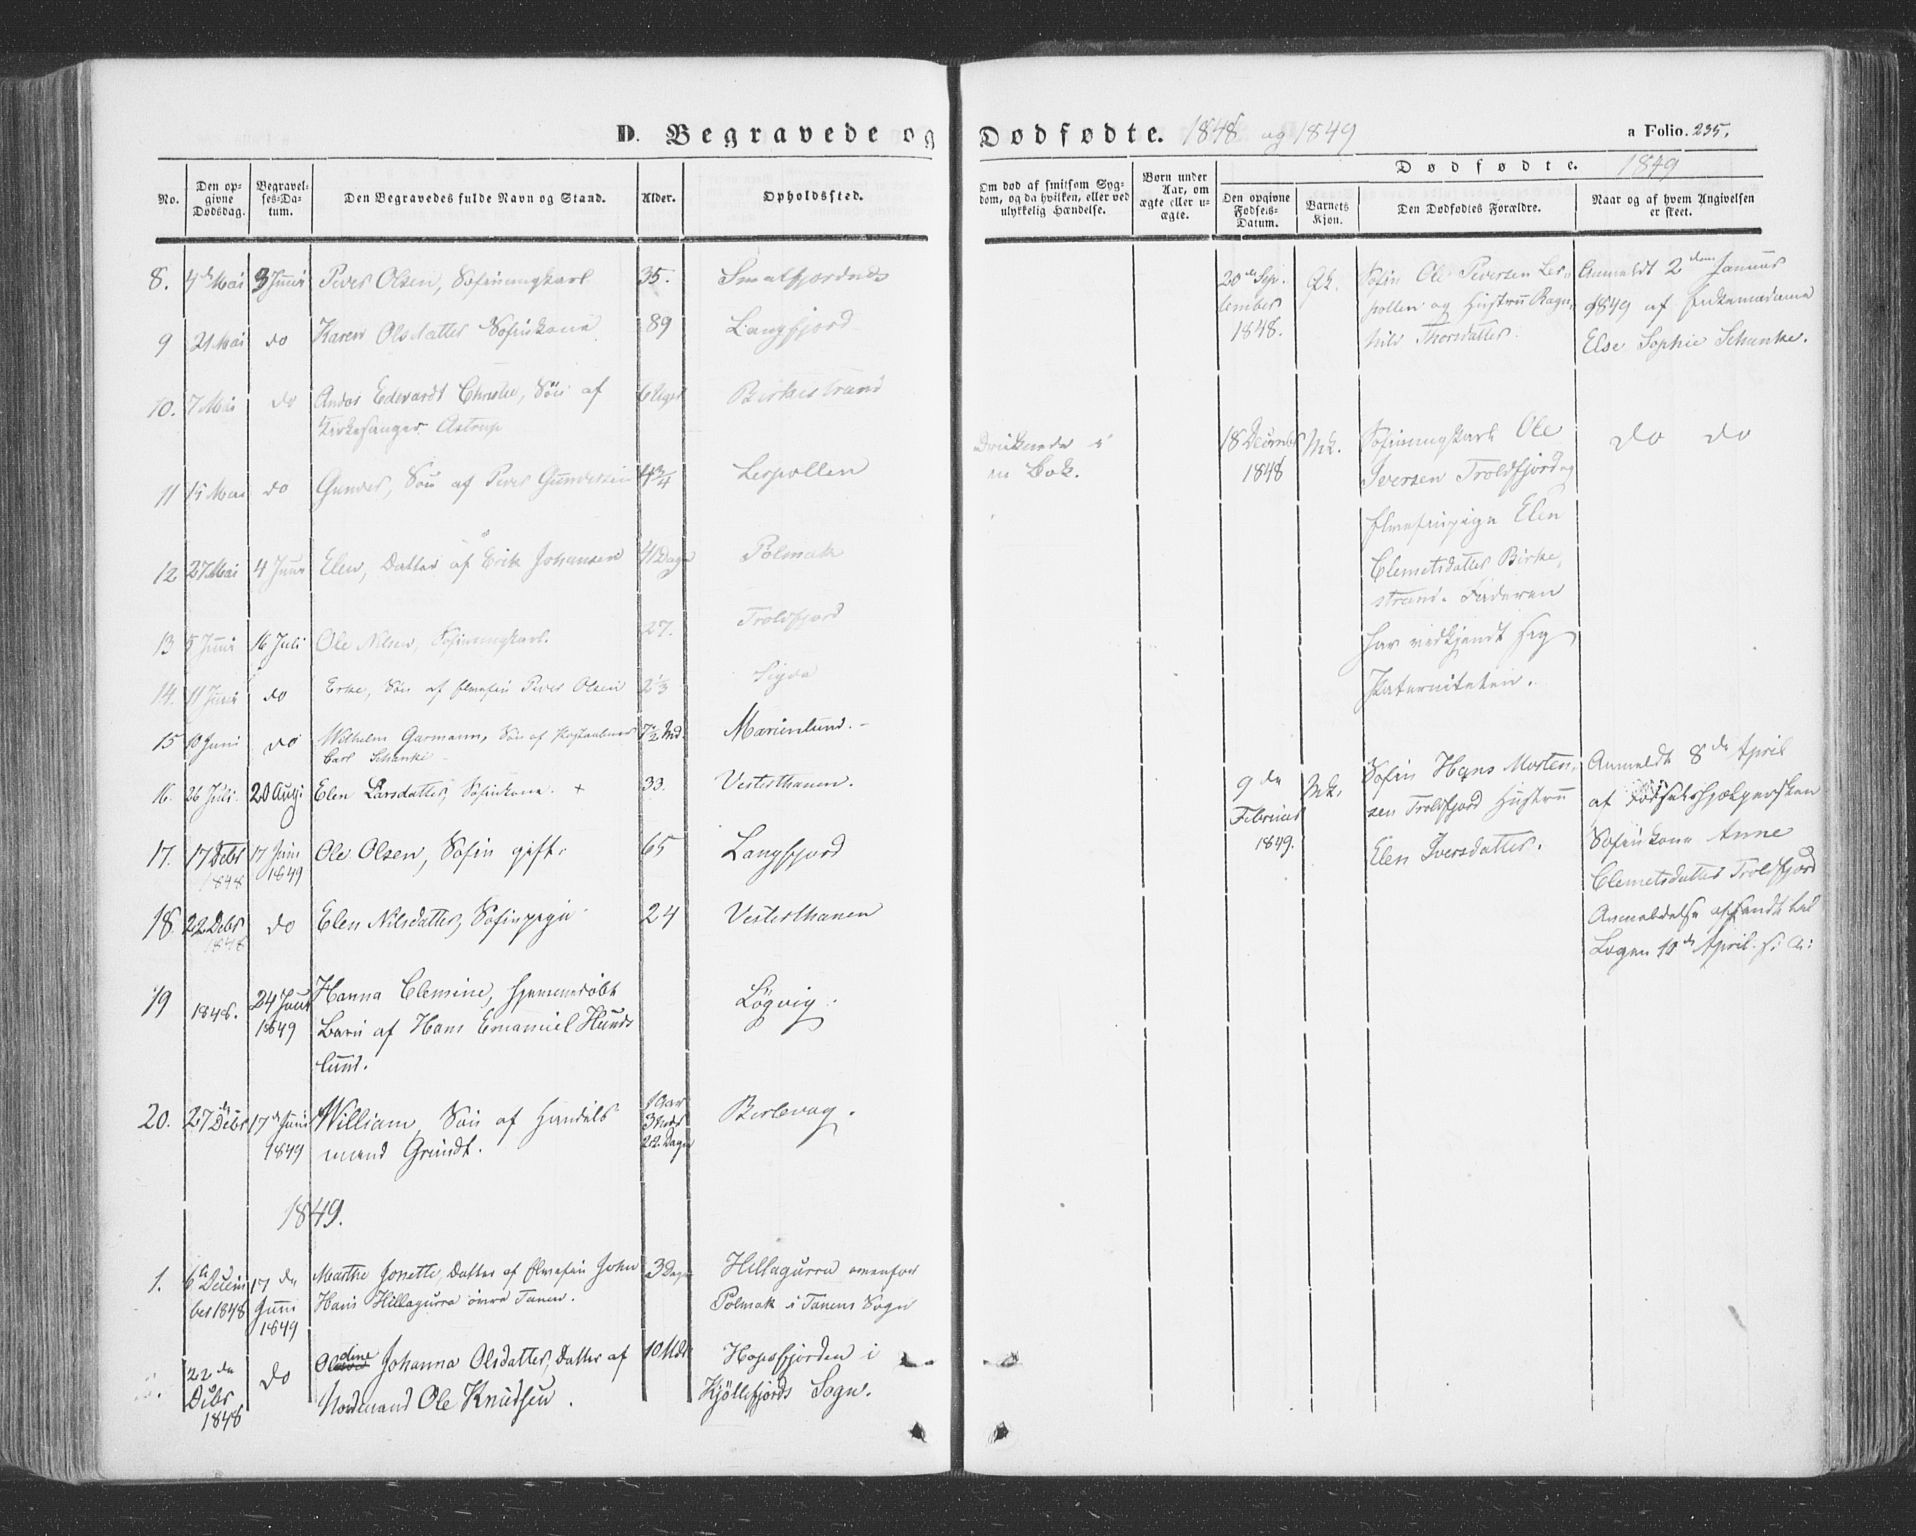 D. Begravede og Dødfødte. 1848 og 1849
a Folio. 235.
No.
Den opgivne Dødsdag.
Begravelses-Datum.
Den Begravedes fulde Navn og Stand.
Alder.
Opholdssted.
Om død af smitsom Sygdom, og da hvilken, eller ved ulykkelig Hændelse.
Børn under Aar, om ægte eller uægte.
Dødfødte. 1849
Den opgivne Fødsels-Datum.
Barnets Kjøn.
Den Dødfødtes Forældre.
Naar og af hvem Angivelsen er skeet.
8. 4de Mai 3 Juni Peder Olsen, Søfinungkarl 35. Smalfjordnæs
9 21 Mai do Karen Olsdatter Søfinkone 89 Langfjord
10. 7 Mai do Andos Edvardt Christie, Søn af 6 Uger Birkestrand
Kirkesanger Astrup
11 15 Mai do Gunder, Søn af Peder Gundersen 4 3/4 Leirpollen
Druknede i
en Bæk.
12 27 Mai 4 Juni Elen, Datter af Erik Johansen 4 Dage Polmak
13 5 Juni 16 Juli Ole Nilsen, Søfinungkarl. 27. Troldfjord
14. 11 Juni do Søn af Elvefin Peder Olsen 2 1/3
15 10 Juni do Wilhelm Garmann, Søn af 7 1/2 Md. Marienlund.
Carl Schanke
16. 26 Juli. 20 Aug. Elen Larsdatter, Søfinkone. + 33. Vestertanen.
17. 17 Debr 1848 17 Juni 1849 Ole Olsen, Søfin gift. 65 Langfjord
18. 22 Debr 1848 do Elen Nilsdatter, Søfinpige 24 Vestertanen
19 1848. 24 Juni 1849 Hanna Clemine, hjemmedøbt Løgvig.
Barn af Hans Emanuel Hunds
lund.
20. 27de Debr 17de Juni 1849 William, Søn af Handels 1 Aar 3 Mdr 22 Dage Berlevag.
mand Grundt.
1849.
1. 6te Decem 17de Marthe Jonette, Datter af Elvefin John 3 Dage Hillagurra ovenfor
ber 1848 Juni 1849 Hans Hillagurra øvre Tanen. Polmak i Tanens Sogn
22de Debr 1848 do Oldine Johanna Olsdatter, Datter af 10 Mdr Hopsfjorden i
Nordmand Ole Knudsen. Kjøllefjords Sogn.
20de Sep
tember
1848.
Qk.
Søfin Ole Peersen Leir
pollen og Hustru Ragn
hild Thorsdatter.
Anmeldt 2den Januar
1849 af Enkemadame
Else Sophie Schanke.
18 December
1848
Mk.
Søfinungkarl Ole
Iversen Troldfjord og
Elvefinpige Elen
Clemetsdatter Birke
strand. Faderen
har vedkjendt sig
Paterniteten.
do do
9de
Februar
1849.
Mk.
Søfin Hans Morten
sen Troldfjord Hustru
Elen Iversdatter.
Anmeldt 8de April
af Fødselshjælpersken
Søfinkone Anne
Clemetsdatter Troldfjord
Anmeldelse afsendt til
Logen 10de April s. A: